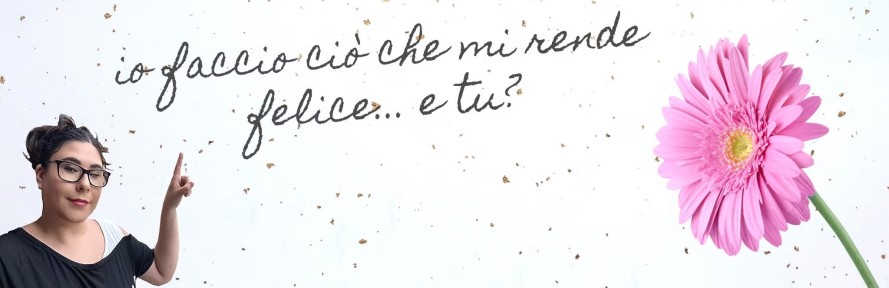 io faccio ciò che mi rende
felice... e tu?